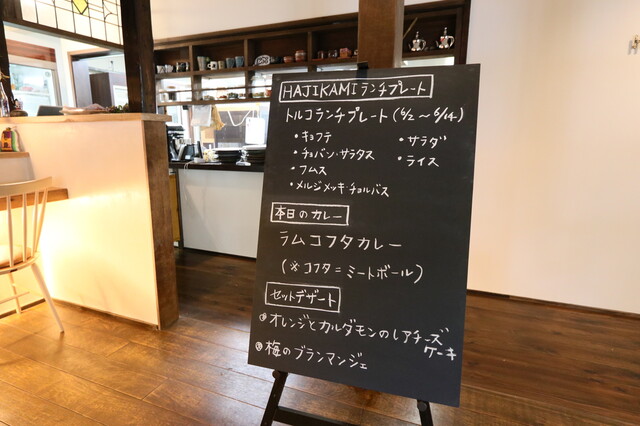 HAJIKAMI ランチプレート
トルコランチプレート (6/2 〜 6/14)
・キョフテ
・チョバン・サラタス
・フムス
・メルジメッキ・チョルバス
・サラダ
・ライス
本日のカレー
ラムコフタカレー
(※ コフタ = ミートボール)
セットデザート
オレンジとカルダモンのレアチーズ
ケーキ
梅のブランマンジェ